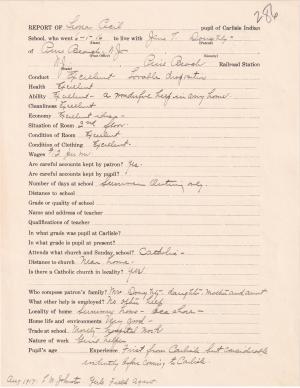 286
REPORT OF Lena Cecil pupil of Carlisle Indian
School, who went 6-1-16 to live with Jane T. Doughty
(Date) (Patron)
at Pine Beach, N.J.
(Post Office) (County)
N.J. Pine Beach Railroad Station
(State)
Conduct Excellent Lovable disposition
Health Excellent
Ability Excellent - a wonderful help in any home
Cleanliness Excellent
Economy Excellent
Situation of Room 2nd floor
Condition of Room Excellent
Condition of Clothing Excellent
Wages $2 per
Are careful accounts kept by patron? Yes.
Are careful accounts kept by pupil?
Number of days at school Summer Outing only.
Distance to school
Grade or quality of school
Name and address of teacher
Qualifications of teacher
In what grade was pupil at Carlisle?
In what grade is pupil at present?
Attends what church and Sunday school? Catholic -
Distance to church Near home -
Is there a Catholic church in locality? yes.
Who compose patron's family? Mrs Doughty - daughter, mother and aunt
What other help is employed? No other help
Locality of home Summer home - sea shore -
Home life and environments Very good -
Trade at school Mostly hospital work
Nature of work Gen'l helper
Pupil's age Experience First from Carlisle but considerable
before coming to Carlisle
Aug 1917. L. M. Johnston Girls Field Agent